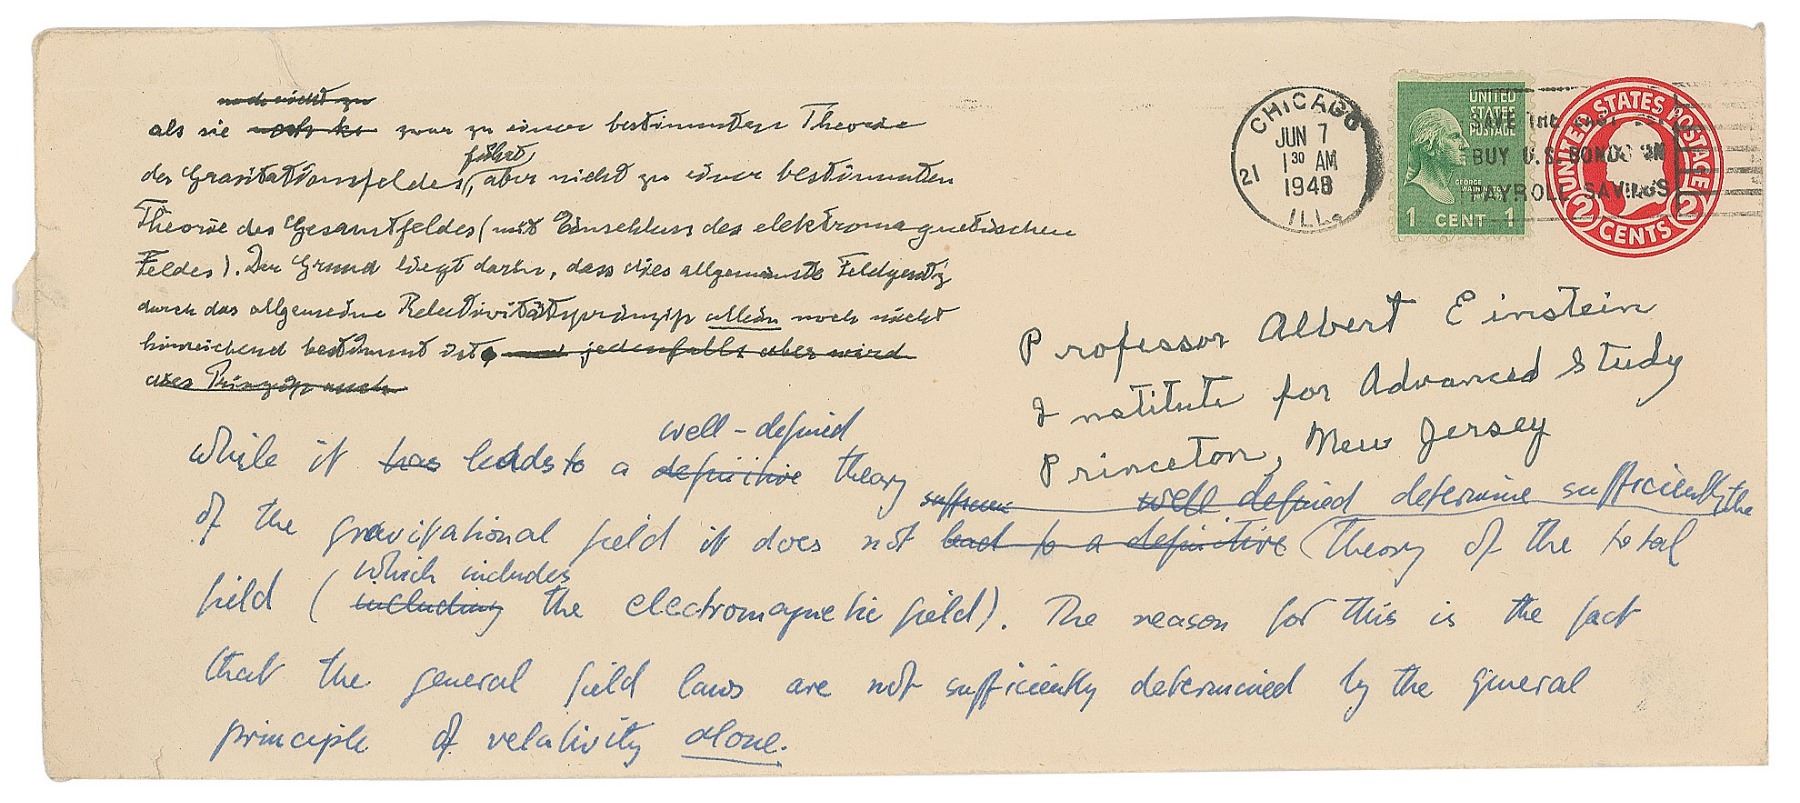 noch nicht zu
als sie zwar zu einer bestimmten Theorie
führt,
des Gravitationsfeldes, aber nicht zu einer bestimmten
Theorie des Gesamtfeldes (mit Einschluss des elektromagnetischen
Feldes). Der Grund liegt darin, dass dies allgemeinste Feldgesetz
durch das allgemeine Relativitätsprinzip allein noch nicht
hinreichend bestimmt ist, und jedenfalls aber wird
dies Prinzip auch
CHICAGO
JUN 7
1 30 AM
1948
21
ILL.
UNITED
STATES
POSTAGE
GEORGE
WASHINGTON
1 CENT 1
SAVE THE EASY
BUY U.S. BONDS ON
PAYROLL SAVINGS
UNITED STATES POSTAGE
2 CENTS 2
Professor Albert Einstein
Institute for Advanced Study
Princeton, New Jersey
well-defined
while it has leads to a definitive theory
well defined determine sufficiently the
of the gravitational field it does not lead to a definitive (Theory of the total
which includes
field (including the electromagnetic field). The reason for this is the fact
that the general field laws are not sufficiently determined by the general
principle of relativity alone.